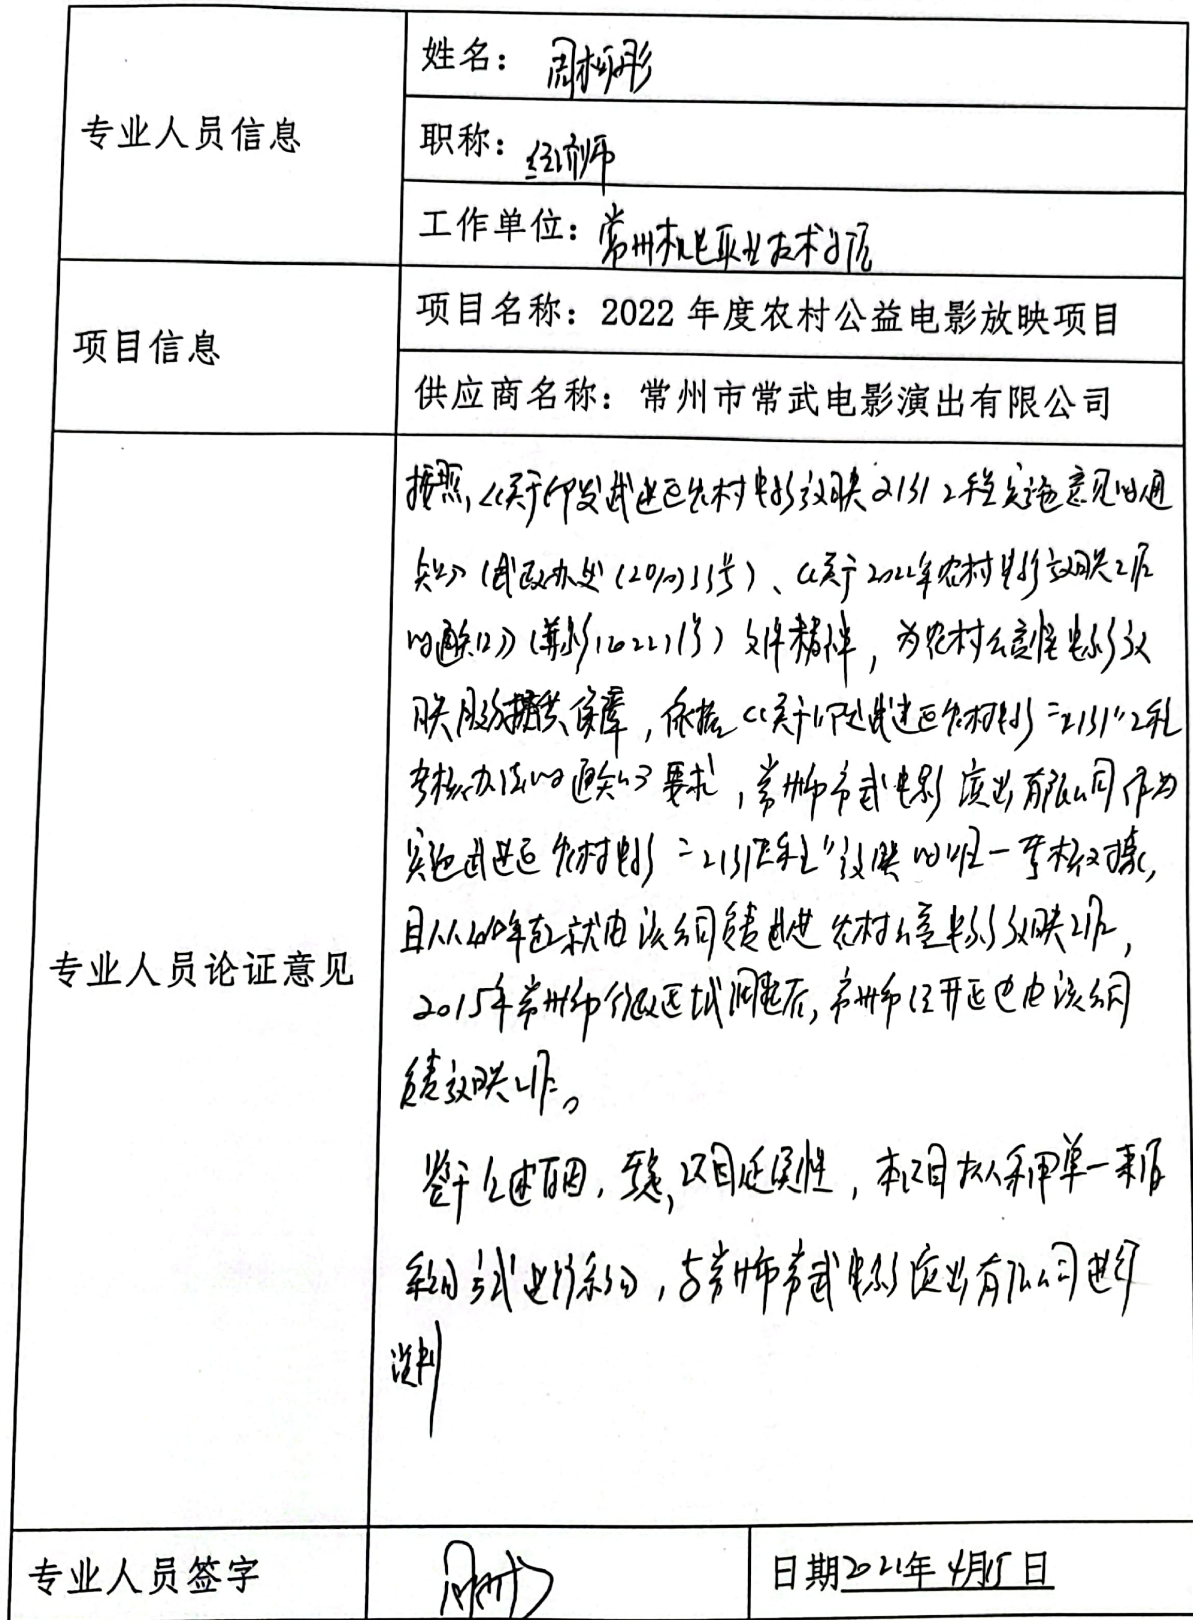 专业人员信息
姓名：周彬彤
职称：经济师
工作单位：常州机电职业技术学院
项目信息
项目名称：2022 年度农村公益电影放映项目
供应商名称：常州市常武电影演出有限公司
专业人员论证意见
按照，《关于印发武进区农村电影放映2131工程实施意见的通
知》（武政办发（2010）33号）、《关于2022年农村电影放映工作
的通知》（影（2022）1号）文件精神，为农村公益性电影放
映服务提供保障，依据《关于印发武进区农村电影“2131”工程
考核办法的通知》要求，常州市常武电影演出有限公司作为
实施武进区农村电影“2131工程”放映的唯一考核对象，
且从年起就由该公司负责武进农村公益电影放映工作，
2015年常州市行政区域调整后，常州市经开区也由该公司
负责放映工作。
鉴于上述原因，考虑项目延续性，本项目拟采用单一来源
采购方式进行采购，与常州市常武电影演出有限公司进行
谈判
专业人员签字
日期2022年4月15日